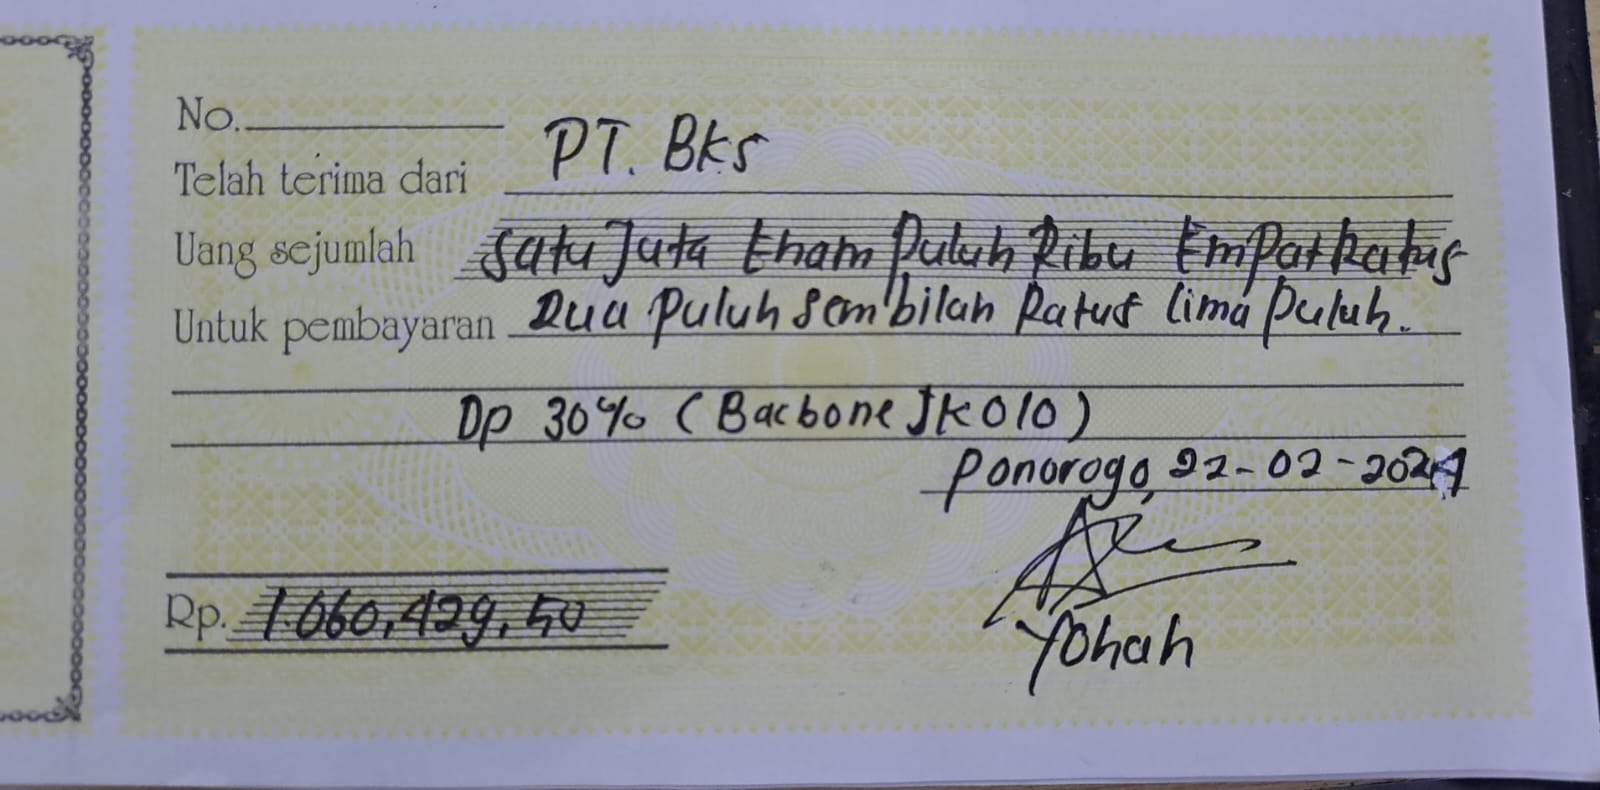 No.
Telah terima dari PT. Bks
Uang sejumlah Satu Juta Enam Puluh Ribu Empat Ratus
Untuk pembayaran Dua Puluh Sembilan Ratus Lima Puluh.
Dp 30% (Bacbone JK010)
Ponorogo, 22-02-2024
Rp. 1.060,429,50
Yohan